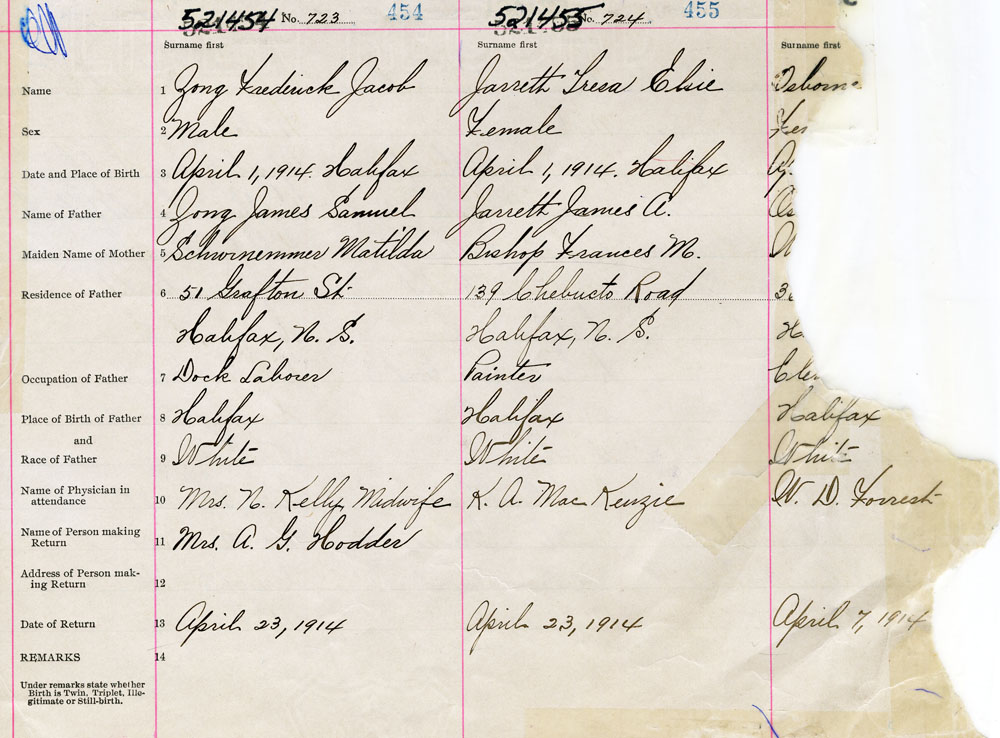 521454 No. 723 454 521455 No. 724 455
Surname first Surname first Surname first
Name 1 Zong Frederick Jacob Jarreth Tresa Elsie Osborne
Sex 2 Male Female Fem
Date and Place of Birth 3 April 1, 1914. Halifax April 1, 1914. Halifax
Name of Father 4 Zong James Samuel Jarreth James A.
Maiden Name of Mother 5 Schwinemmer Matilda Bishop Frances M.
Residence of Father 6 51 Grafton St. 139 Chebucto Road 3
Halifax, N. S. Halifax, N. S. H
Occupation of Father 7 Dock Laborer Painter Cler
Place of Birth of Father 8 Halifax Halifax Halifax
and
Race of Father 9 White White White
Name of Physician in
attendance 10 Mrs. N. Kelly Midwife K. A. Mac Kenzie W. D. Forrest
Name of Person making
Return 11 Mrs. A. G. Hodder
Address of Person mak-
ing Return 12
Date of Return 13 April 23, 1914 April 23, 1914 April 7, 1914
REMARKS 14
Under remarks state whether
Birth is Twin, Triplet, Ille-
gitimate or Still-birth.